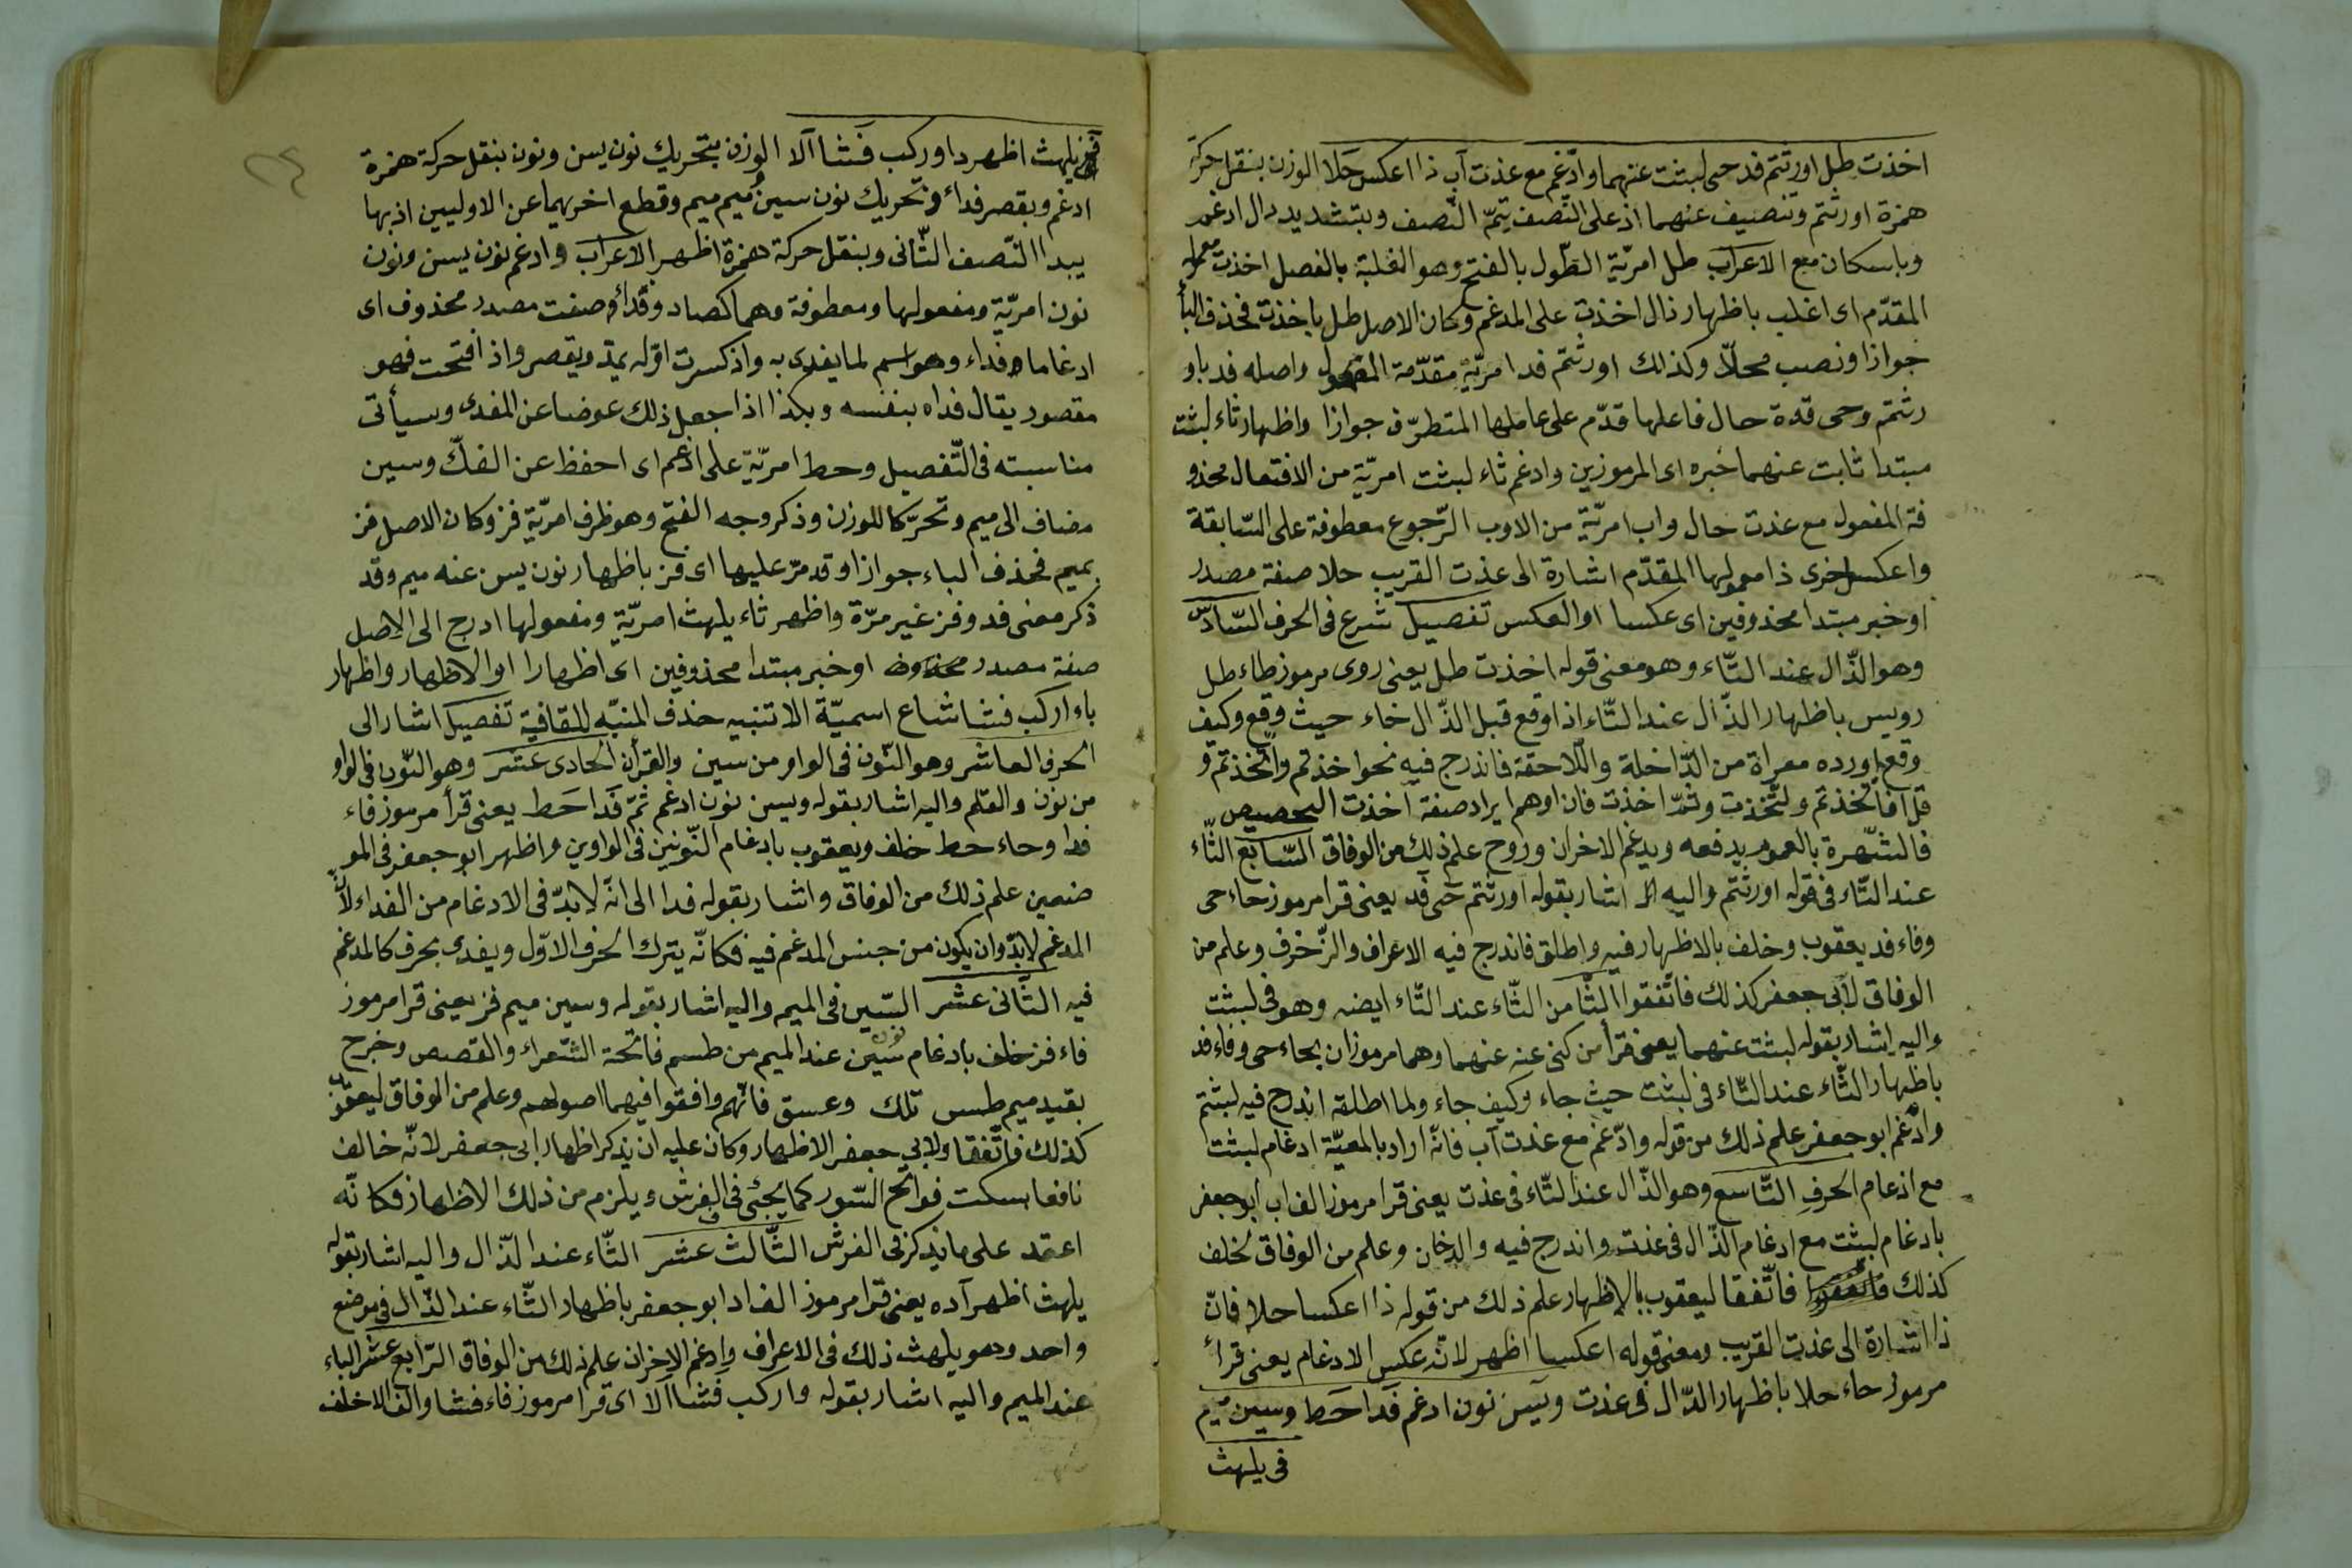 اخذت طل اورثتم فد حمى لبثت عنهما وادّغم مع عذت آب ذا اعكس حلا الوزن بنقل حركة
همزة اورثتم وتنصيف عنهما اذ على النّصف يتمّ النّصف وبتشديد دال ادغم
وباسكان مع الاعراب طل امريّة الطّول بالفتح وهو الغلبة بالفصل اخذت معموله
المقدّم اى اغلب باظهار ذال اخذت على المدغم وكان الاصل طل باخذت فحذف الباء
جوازا ونصب محلّا وكذلك اورثتم فد امريّة مقدّمة المفعول واصله فد باو
رثتم وحمى قدة حال فاعلها قدّم على عاملها المتطرّف جوازا واظهار ثاء لبثت
مبتدا ثابت عنهما خبره اى المرموزين وادغم ثاء لبثت امريّة من الافتعال محذو
فة المفعول مع عذت حال واب امريّة من الاوب الرّجوع معطوفة على السّابقة
واعكس اخرى ذا معمولها المقدّم اشارة الى عذت القريب حلا صفة مصدر
او خبر مبتدا محذوفين اى عكسا او العكس تفصيل شرع فى الحرف السّادس
وهو الذّال عند التّاء وهو معنى قوله اخذت طل يعنى روى مرموز طاء طل
رويس باظهار الذّال عند التّاء اذا وقع قبل الذّال خاء حيث وقع وكيف
وقع اورده معراة من الدّاخلة واللّاحقة فاندرج فيه نحو اخذتم واتّخذتم و
قل افاتّخذتم ولتّخذت وثمّ اخذت فان اوهم ايراد صفة اخذت التخصيص
فالشّهرة بالعموم يدفعه ويدغم الاخران وروح علم ذلك من الوفاق السّابع الثّاء
عند التّاء فى قوله اورثتم واليه اشار بقوله اورثتم حمى فد يعنى قرا مرموز حاء حمى
وفاء فد يعقوب وخلف بالاظهار فيه واطلق فاندرج فيه الاعراف والزّخرف وعلم من
الوفاق لابى جعفر كذلك فاتّفقوا الثّامن الثّاء عند التّاء ايضه وهو فى لبثت
واليه اشار بقوله لبثت عنهما يعنى قرأ من كنى عنه عنهما وهما مرموزان بحاء حمى وفاء فد
باظهار الثّاء عند التّاء فى لبثت حيث جاء وكيف جاء ولما اطلقه اندرج فيه لبثتم
وادّغم ابو جعفر علم ذلك من قوله وادّغم مع عذت آب فانّه اراد بالمعيّة ادغام لبثت
مع ادغام الحرف التّاسع وهو الذّال عند التّاء فى عذت يعنى قرا مرموز الف اب ابو جعفر
بادغام لبثت مع ادغام الذّال فى عذت واندرج فيه والدخان وعلم من الوفاق لخلف
كذلك فاتّفقا ليعقوب بالاظهار علم ذلك من قوله ذا اعكسا حلا فانّ
ذا اشارة الى عذت القريب ومعنى قوله اعكسا اظهر لانّه عكس الادغام يعنى قرأ
مرموز حاء حلا باظهار الذّال فى عذت ويس نون ادغم فدا حط وسين ميم
فى يلهث
فز يلهث اظهر د اوركب فشا الا الوزن بتحريك نون يسن ونون بنقل حركة همزة
ادغم وبقصر فداء وتحريك نون سين ميم ميم وقطع اخريهما عن الاوليين اذ بها
يبدا النّصف الثّانى وبنقل حركة همزة اظهر الاعراب وادغم نون يسن ونون
نون امريّة ومفعولها ومعطوفة وهما كصاد وفدا وصفت مصدر محذوف اى
ادغاما فداء وهو اسم لما يفدى به واذ كسرت اوّله يمدّ ويقصر واذ افتحت فهو
مقصور يقال فداه بنفسه وبكذا اذا جعل ذلك عوضا عن المفدى وسيأتى
مناسبته فى التّفصيل وحط امريّة على ادغم اى احفظ عن الفكّ وسين
مضاف الى ميم وتحرّكا للوزن وذكر وجه الفتح وهو ظرف امريّة فز وكان الاصل فز
بميم فحذف الباء جوازا وقد مرّ عليها اى فز باظهار نون يس عنه ميم وقد
ذكر معنى فد وفز غير مرّة واظهر ثاء يلهث امريّة ومفعولها ادرج الى الاصل
صفة مصدر محذوف او خبر مبتدا محذوفين اى اظهارا او الاظهار واظهار
باء اركب فشا شاع اسميّة الا تنبيه حذف المنبّه للقافية تفصيل اشار الى
الحرف العاشر وهو النّون فى الواو من سين والقرآن الحادى عشر وهو النّون فى الواو
من نون والقلم واليه اشار بقوله ويسن نون ادغم ثمّ فدا حط يعنى قرأ مرموز فاء
فدا وحاء حط خلف ويعقوب بادغام النّونين فى الواوين واظهر ابو جعفر فى المو
ضعين علم ذلك من الوفاق واشار بقوله فدا الى انّه لا بدّ فى الادغام من الفداء لأنّ
المدغم لا بدّ وان يكون من جنس المدغم فيه فكانّه يترك الحرف الاوّل ويفدى بحرف كالمدغم
فيه الثّانى عشر السّين فى الميم واليه اشار بقوله وسين ميم فز يعنى قرا مرموز
فاء فز خلف بادغام نون سين عند الميم من طسم فاتحة الشّعراء والقصص وخرج
بقيد ميم طس تلك وعسق فانّهم وافقوا فيهما اصولهم وعلم من الوفاق ليعقوب
كذلك فاتّفقا ولابى جعفر الاظهار وكان عليه ان يذكر اظهار ابى جعفر لانّه خالف
نافعا سكت فواتح السّور كما يجئ فى الفرش ويلزم من ذلك الاظهار فكانّه
اعتمد على ما يذكر فى الفرش الثّالث عشر الثّاء عند الذّال واليه اشار بقوله
يلهث اظهر آده يعنى قرا مرموز الف اد ابو جعفر باظهار الثّاء عند الذّال فى موضع
واحد وهو يلهث ذلك فى الاعراف وادغم الاخران علم ذلك من الوفاق الرّابع عشر الباء
عند الميم واليه اشار بقوله واركب فشا الا اى قرا مرموز فاء فشا والف الا خلف